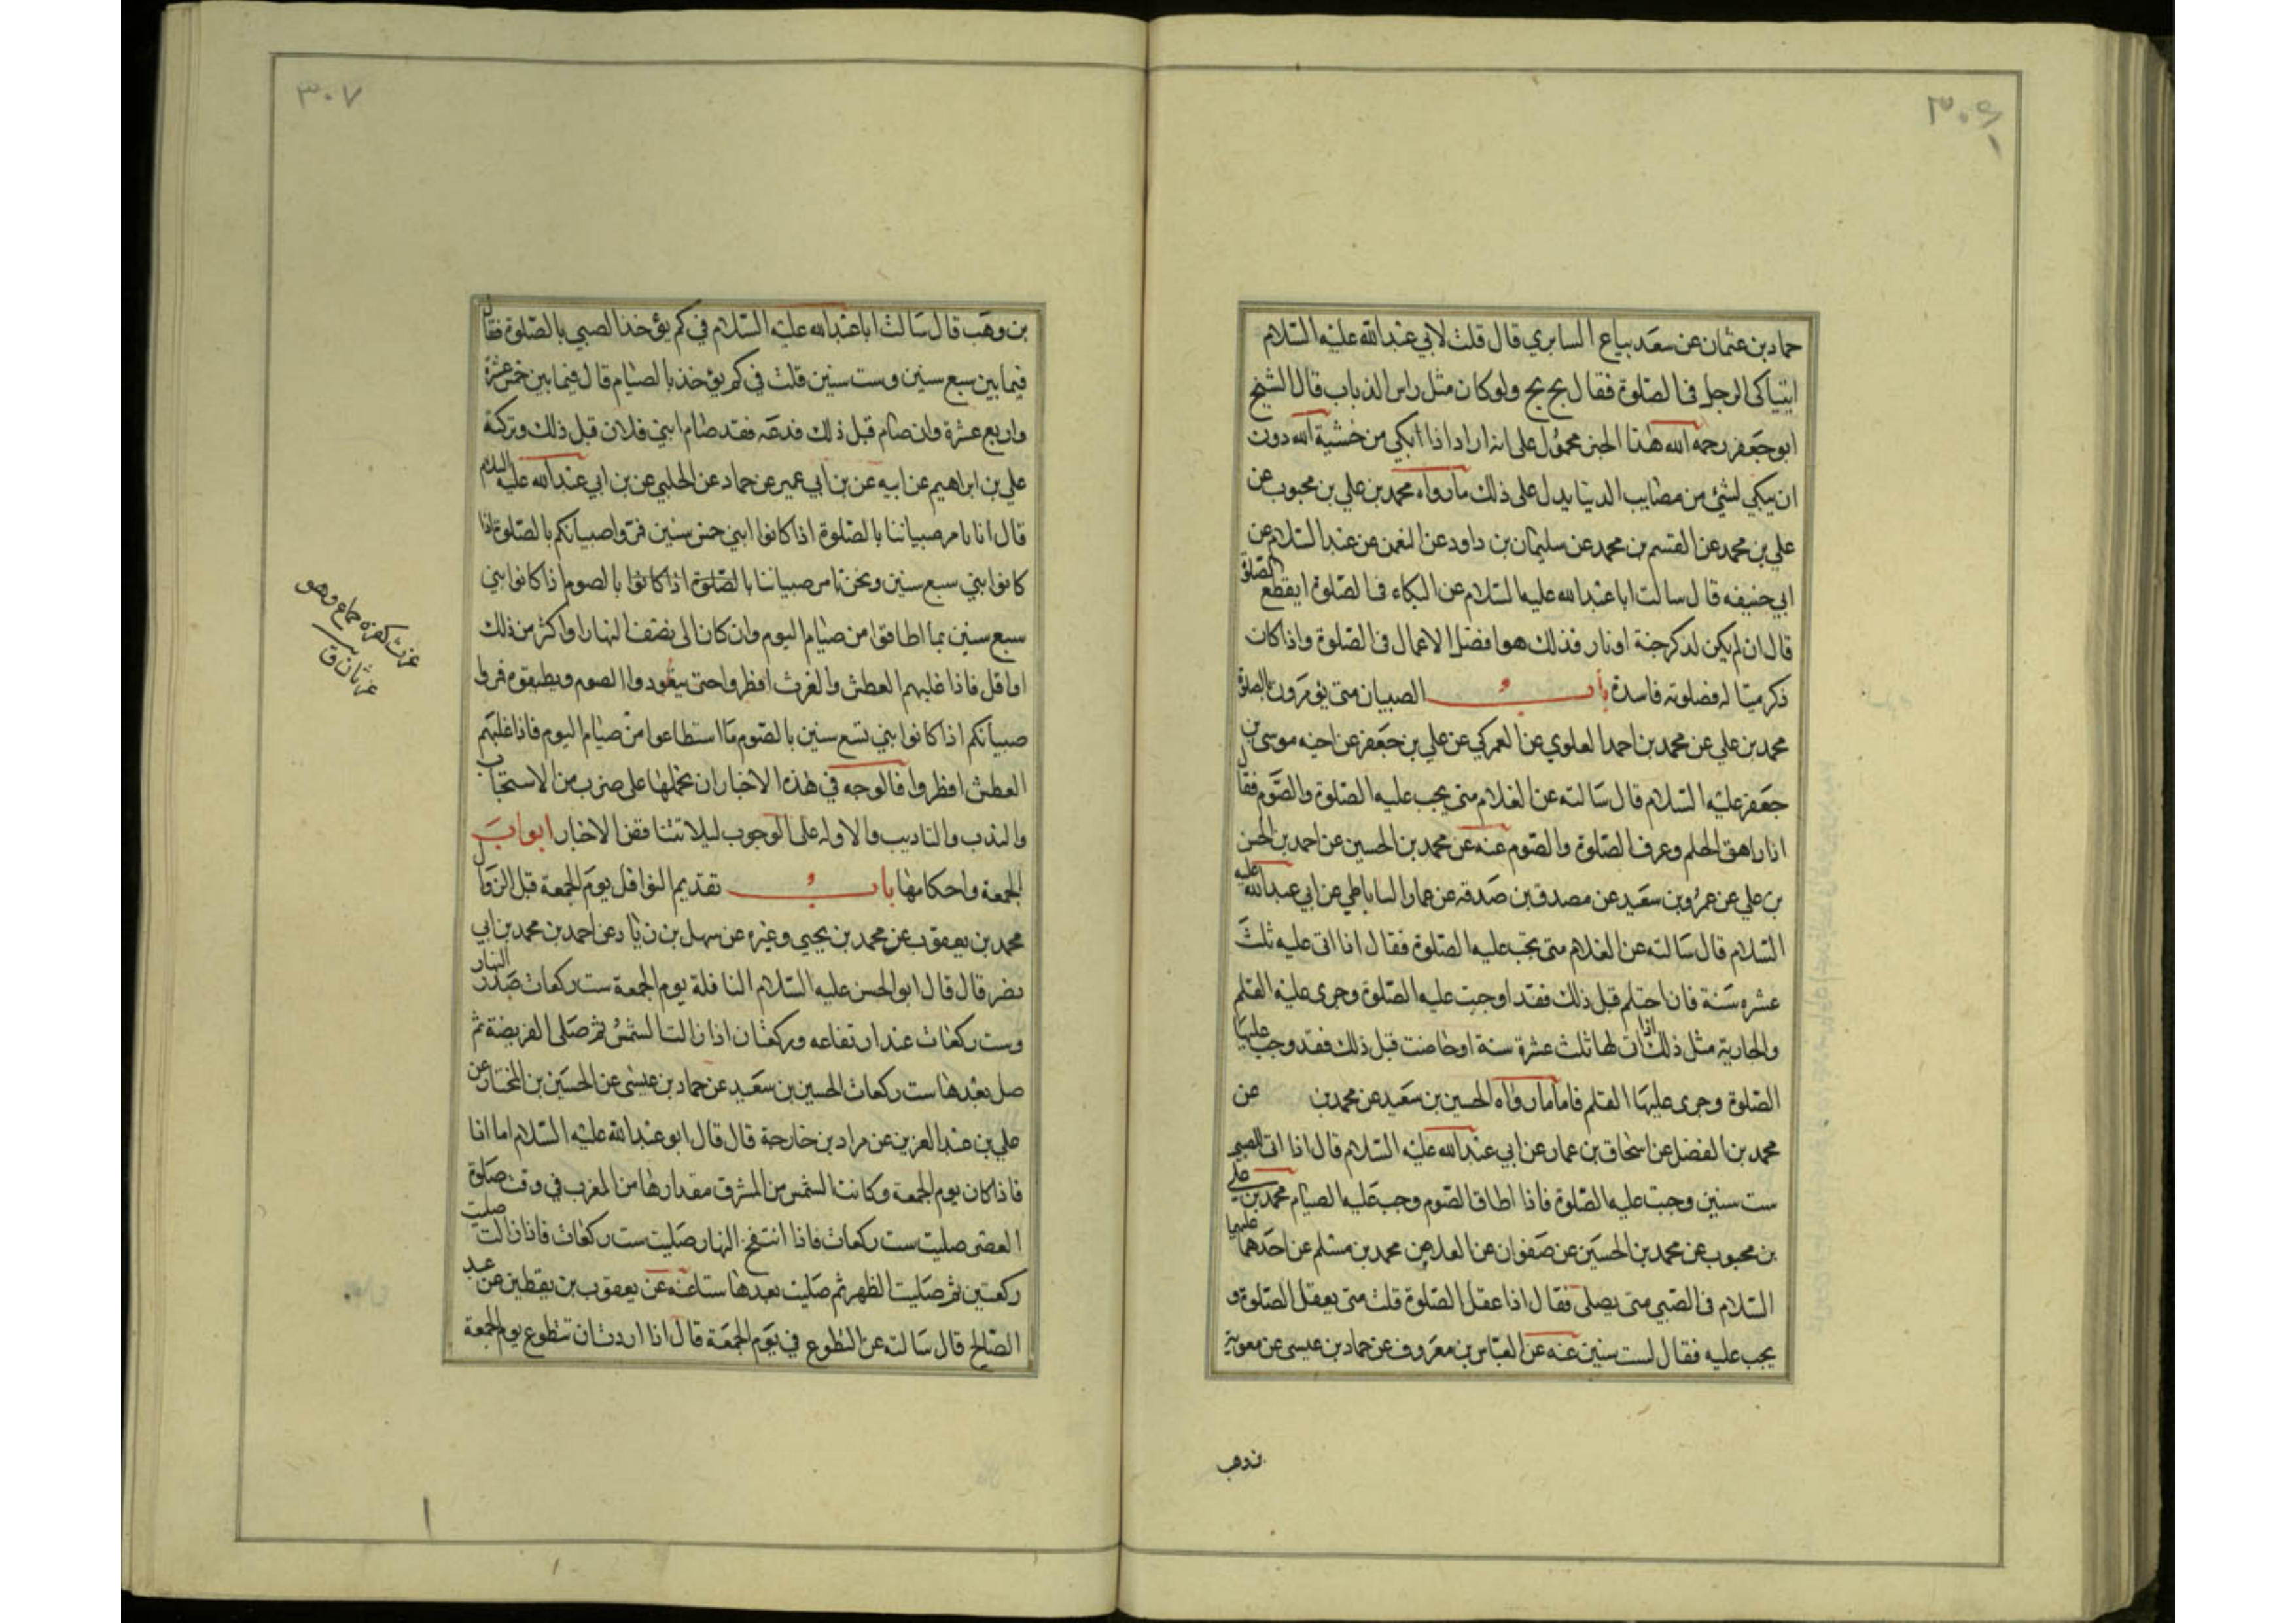 ٣٠٦
حماد بن عثمان عن سعد بياع السابري قال قلت لابي عبد الله عليه السلام
ايتباكى الرجل فى الصلوة فقال بخ بخ ولو كان مثل راس الذباب قال الشيخ
ابو جعفر رحمه الله هذا الخبر محمول على انه اراد اذا ابكي من خشية الله دون
ان يبكي لشئ من مصايب الدنيا يدل على ذلك ما رواه محمد بن علي بن محبوب عن
علي بن محمد عن القسم بن محمد عن سليمان بن داود عن النعمن عن عبد السلام عن
ابي حنيفه قال سالت ابا عبد الله عليه السلام عن البكاء فى الصلوة ايقطع الصلوة
قال ان لم يكن لذكر جنة او نار فذلك هو افضل الاعمال فى الصلوة واذا كان
ذكر ميتا له فصلوته فاسدة باب الصبيان متى يؤمرون بالصلوة
محمد بن علي عن محمد بن احمد العلوي عن العمركي عن علي بن جعفر عن اخيه موسى بن
جعفر عليه السلام قال سالته عن الغلام متى يجب عليه الصلوة والصوم فقال
اذا راهق الحلم وعرف الصلوة والصوم عنه عن محمد بن الحسين عن احمد بن الحسن
بن علي عن عمرو بن سعيد عن مصدق بن صدقه عن عمار الساباطي عن ابي عبد الله عليه
السلام قال سالته عن الغلام متى يجب عليه الصلوة فقال اذا اتى عليه ثلث
عشره سنة فان احتلم قبل ذلك فقد اوجبت عليه الصلوة وجرى عليه القلم
والجارية مثل ذلك اذا اتى لها ثلث عشرة سنة او حاضت قبل ذلك فقد وجب عليها
الصلوة وجرى عليها القلم فاما ما رواه الحسين بن سعيد عن محمد بن عن
محمد بن الفضل عن اسحاق بن عمار عن ابي عبد الله عليه السلام قال اذا اتى الصبي
ست سنين وجبت عليه الصلوة فاذا اطاق الصوم وجب عليه الصيام محمد بن علي
بن محبوب عن محمد بن الحسين عن صفوان عن العلا عن محمد بن مسلم عن احدهما عليهما
السلام فى الصبي متى يصلى فقال اذا عقل الصلوة قلت متى يعقل الصلوة و
يجب عليه فقال لست سنين عنه عن العباس بن معروف عن حماد بن عيسى عن معوية
بن وهب
٣٠٧
بن وهب قال سالت ابا عبد الله عليه السلام في كم يؤخذ الصبي بالصلوة فقال
فيما بين سبع سنين وست سنين قلت في كم يؤخذ بالصيام قال فيما بين خمس عشرة
واربع عشرة وان صام قبل ذلك فدعه فقد صام ابني فلان قبل ذلك وتركته
علي بن ابراهيم عن ابيه عن بن ابي عمير عن حماد عن الحلبي عن بن ابي عبد الله عليه السلام
قال انا نامر صبياننا بالصلوة اذا كانوا ابني خمس سنين فمروا صبيانكم بالصلوة اذا
كانوا بني سبع سنين ونحن نامر صبياننا بالصلوة اذا كانوا بالصوم اذا كانوا بني
سبع سنين بما اطاقوا من صيام اليوم وان كان الى نصف النهار او اكثر من ذلك
او اقل فاذا غلبهم العطش والغرث افطروا حتى يتعودوا الصوم ويطيقوه فمروا
صبيانكم اذا كانوا بني تسع سنين بالصوم ما استطاعوا من صيام اليوم فاذا غلبهم
العطش افطروا فالوجه في هذه الاخبار ان نحملها على ضرب من الاستحباب
والندب والتاديب والاوله على الوجوب ليلا تتناقض الاخبار ابواب
الجمعة واحكامها باب تقديم النوافل يوم الجمعة قبل الزوال
محمد بن يعقوب عن محمد بن يحيى وغيره عن سهل بن زياد عن احمد بن محمد بن ابي
نصر قال قال ابو الحسن عليه السلام النافلة يوم الجمعة ست ركعات صدر النهار
وست ركعات عند ارتفاعه وركعتان اذا زالت الشمس ثم صلى الفريضة ثم
صل بعدها ست ركعات الحسين بن سعيد عن حماد بن عيسى عن الحسين بن المختار عن
علي بن عبد العزيز عن مراد بن خارجة قال قال ابو عبد الله عليه السلام اما انا
فاذا كان يوم الجمعة وكانت الشمس من المشرق مقدارها من المغرب في وقت صلوة
العصر صليت ست ركعات فاذا انتفخ النهار صليت ست ركعات فاذا زالت صليت
ركعتين ثم صليت الظهر ثم صليت بعدها ستا عنه عن يعقوب بن يقطين عن عبد
الصالح قال سالته عن التطوع في يوم الجمعة قال اذا اردت ان تتطوع يوم الجمعة
غرث كفرح جاع وهو
غرثان ق